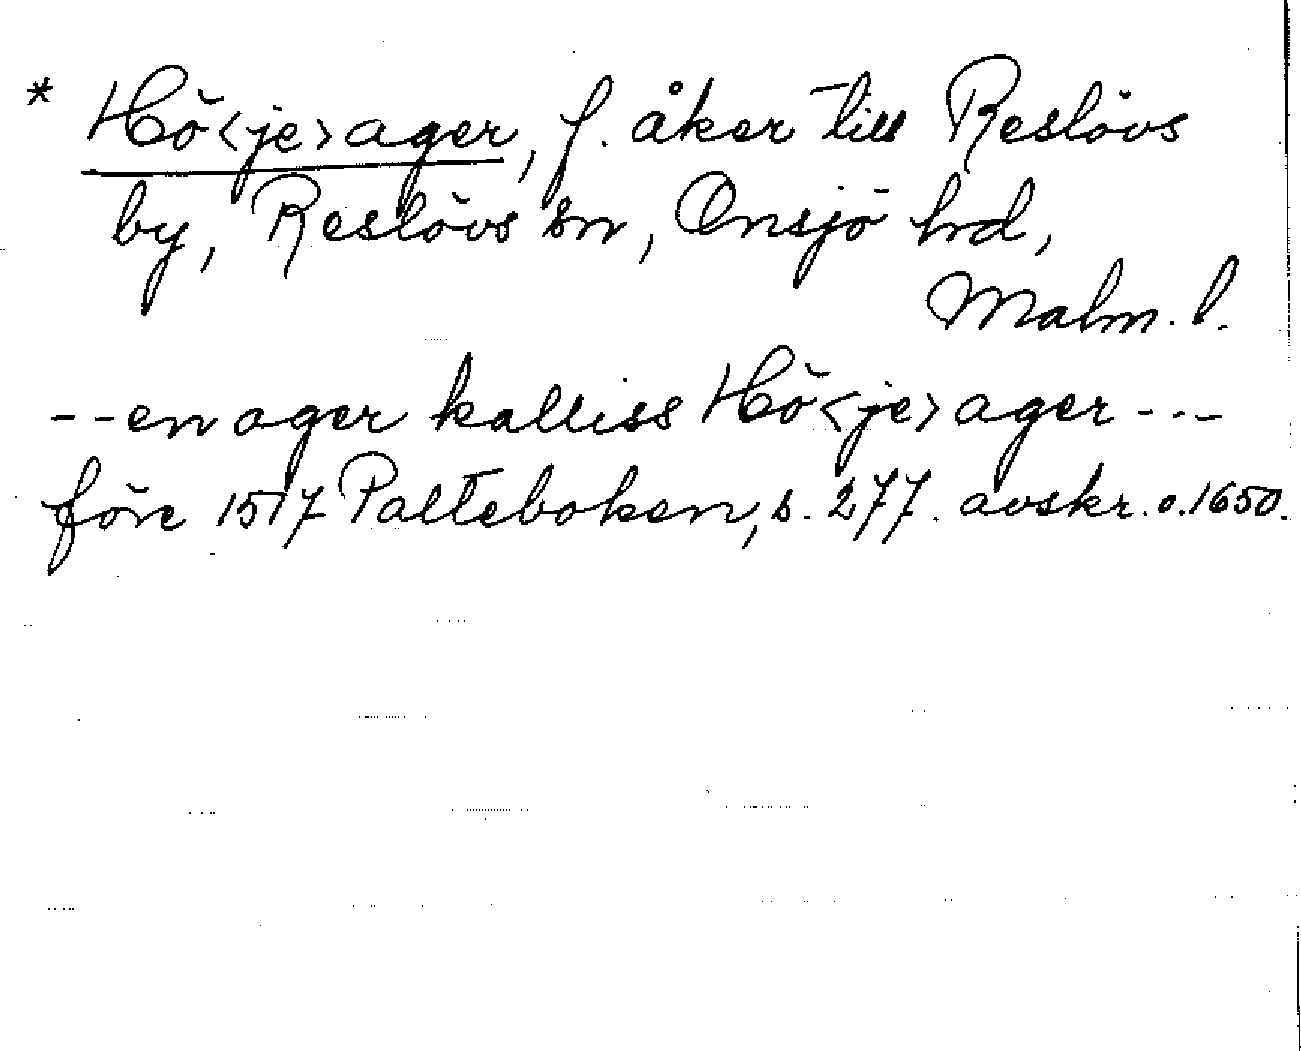 * Hö<je>ager, f. åker till Reslövs
by, Reslövs sn, Onsjö hrd,
Malm. l.
--en ager kalliss Hö<je>ager ---
före 1517 Palteboken, s. 277. avskr. o. 1650.